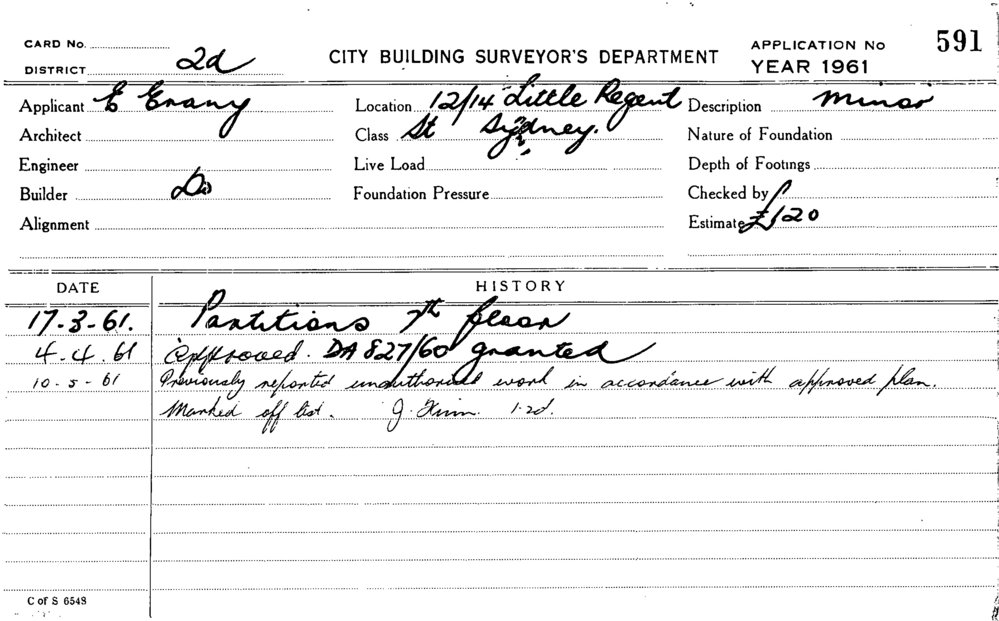 CARD No.
DISTRICT 2d
CITY BUILDING SURVEYOR'S DEPARTMENT
APPLICATION No 591
YEAR 1961
Applicant E Erany
Location 12/14 Little Regent
Description Minor
Architect
Class St Sydney.
Nature of Foundation
Engineer
Live Load
Depth of Footings
Builder Do
Foundation Pressure
Checked by
Alignment
Estimate £120
DATE HISTORY
17-3-61. Partitions 7th floor
4-4.61 Approved. DA 827/60 granted
10-5-61 Previously reported unauthorised work in accordance with approved plan.
Marked off list. J. 1.2d.
C of S 6548